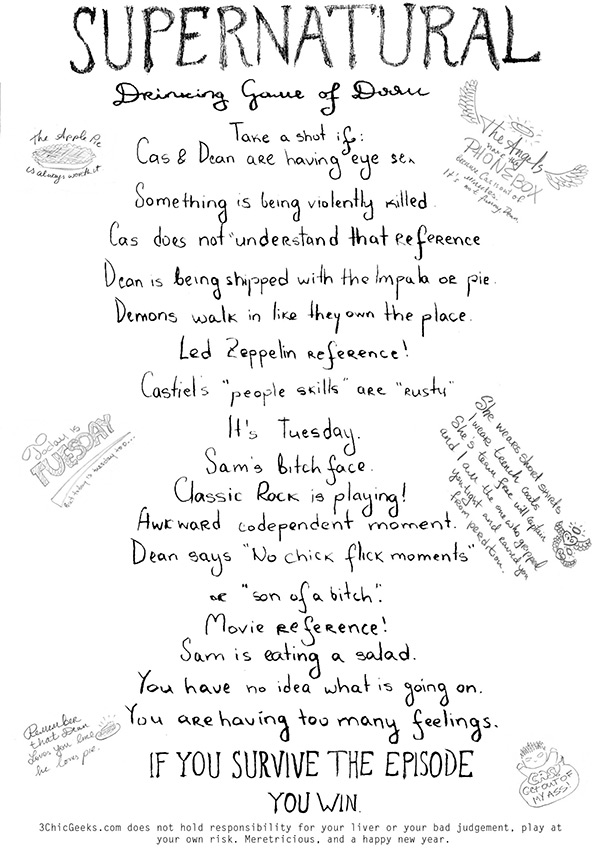 SUPERNATURAL
Drinking Game of Doom
Take a shot if:
Cas & Dean are having eye sex
Something is being violently killed.
Cas does not "understand that reference
Dean is being shipped with the Impala or pie.
Demons walk in like they own the place.
Led Zeppelin reference!
Castiel's "people skills" are "rusty"
It's Tuesday.
Sam's bitch face.
Classic Rock is playing!
Awkward codependent moment.
Dean says "No chick flick moments"
or "son of a bitch".
Movie reference!
Sam is eating a salad.
You have no idea what is going on.
You are having too many feelings.
IF YOU SURVIVE THE EPISODE
YOU WIN.
The Apple Pie
is always worth it
The Angels
have the
PHONEBOX
because Cas ran out of
minutes.
It's not funny Dean.
Today is
TUESDAY
But today is tuesday too...
She wears short skirts
I wear trench coats
She's team free will captain
and I am the one who gripped
you tight and raised you
from perdition.
Remember
that Dean
loves you like
he loves pie.
GET OUT OF
MY ASS!
3ChicGeeks.com does not hold responsibility for your liver or your bad judgement, play at
your own risk. Meretricious, and a happy new year.